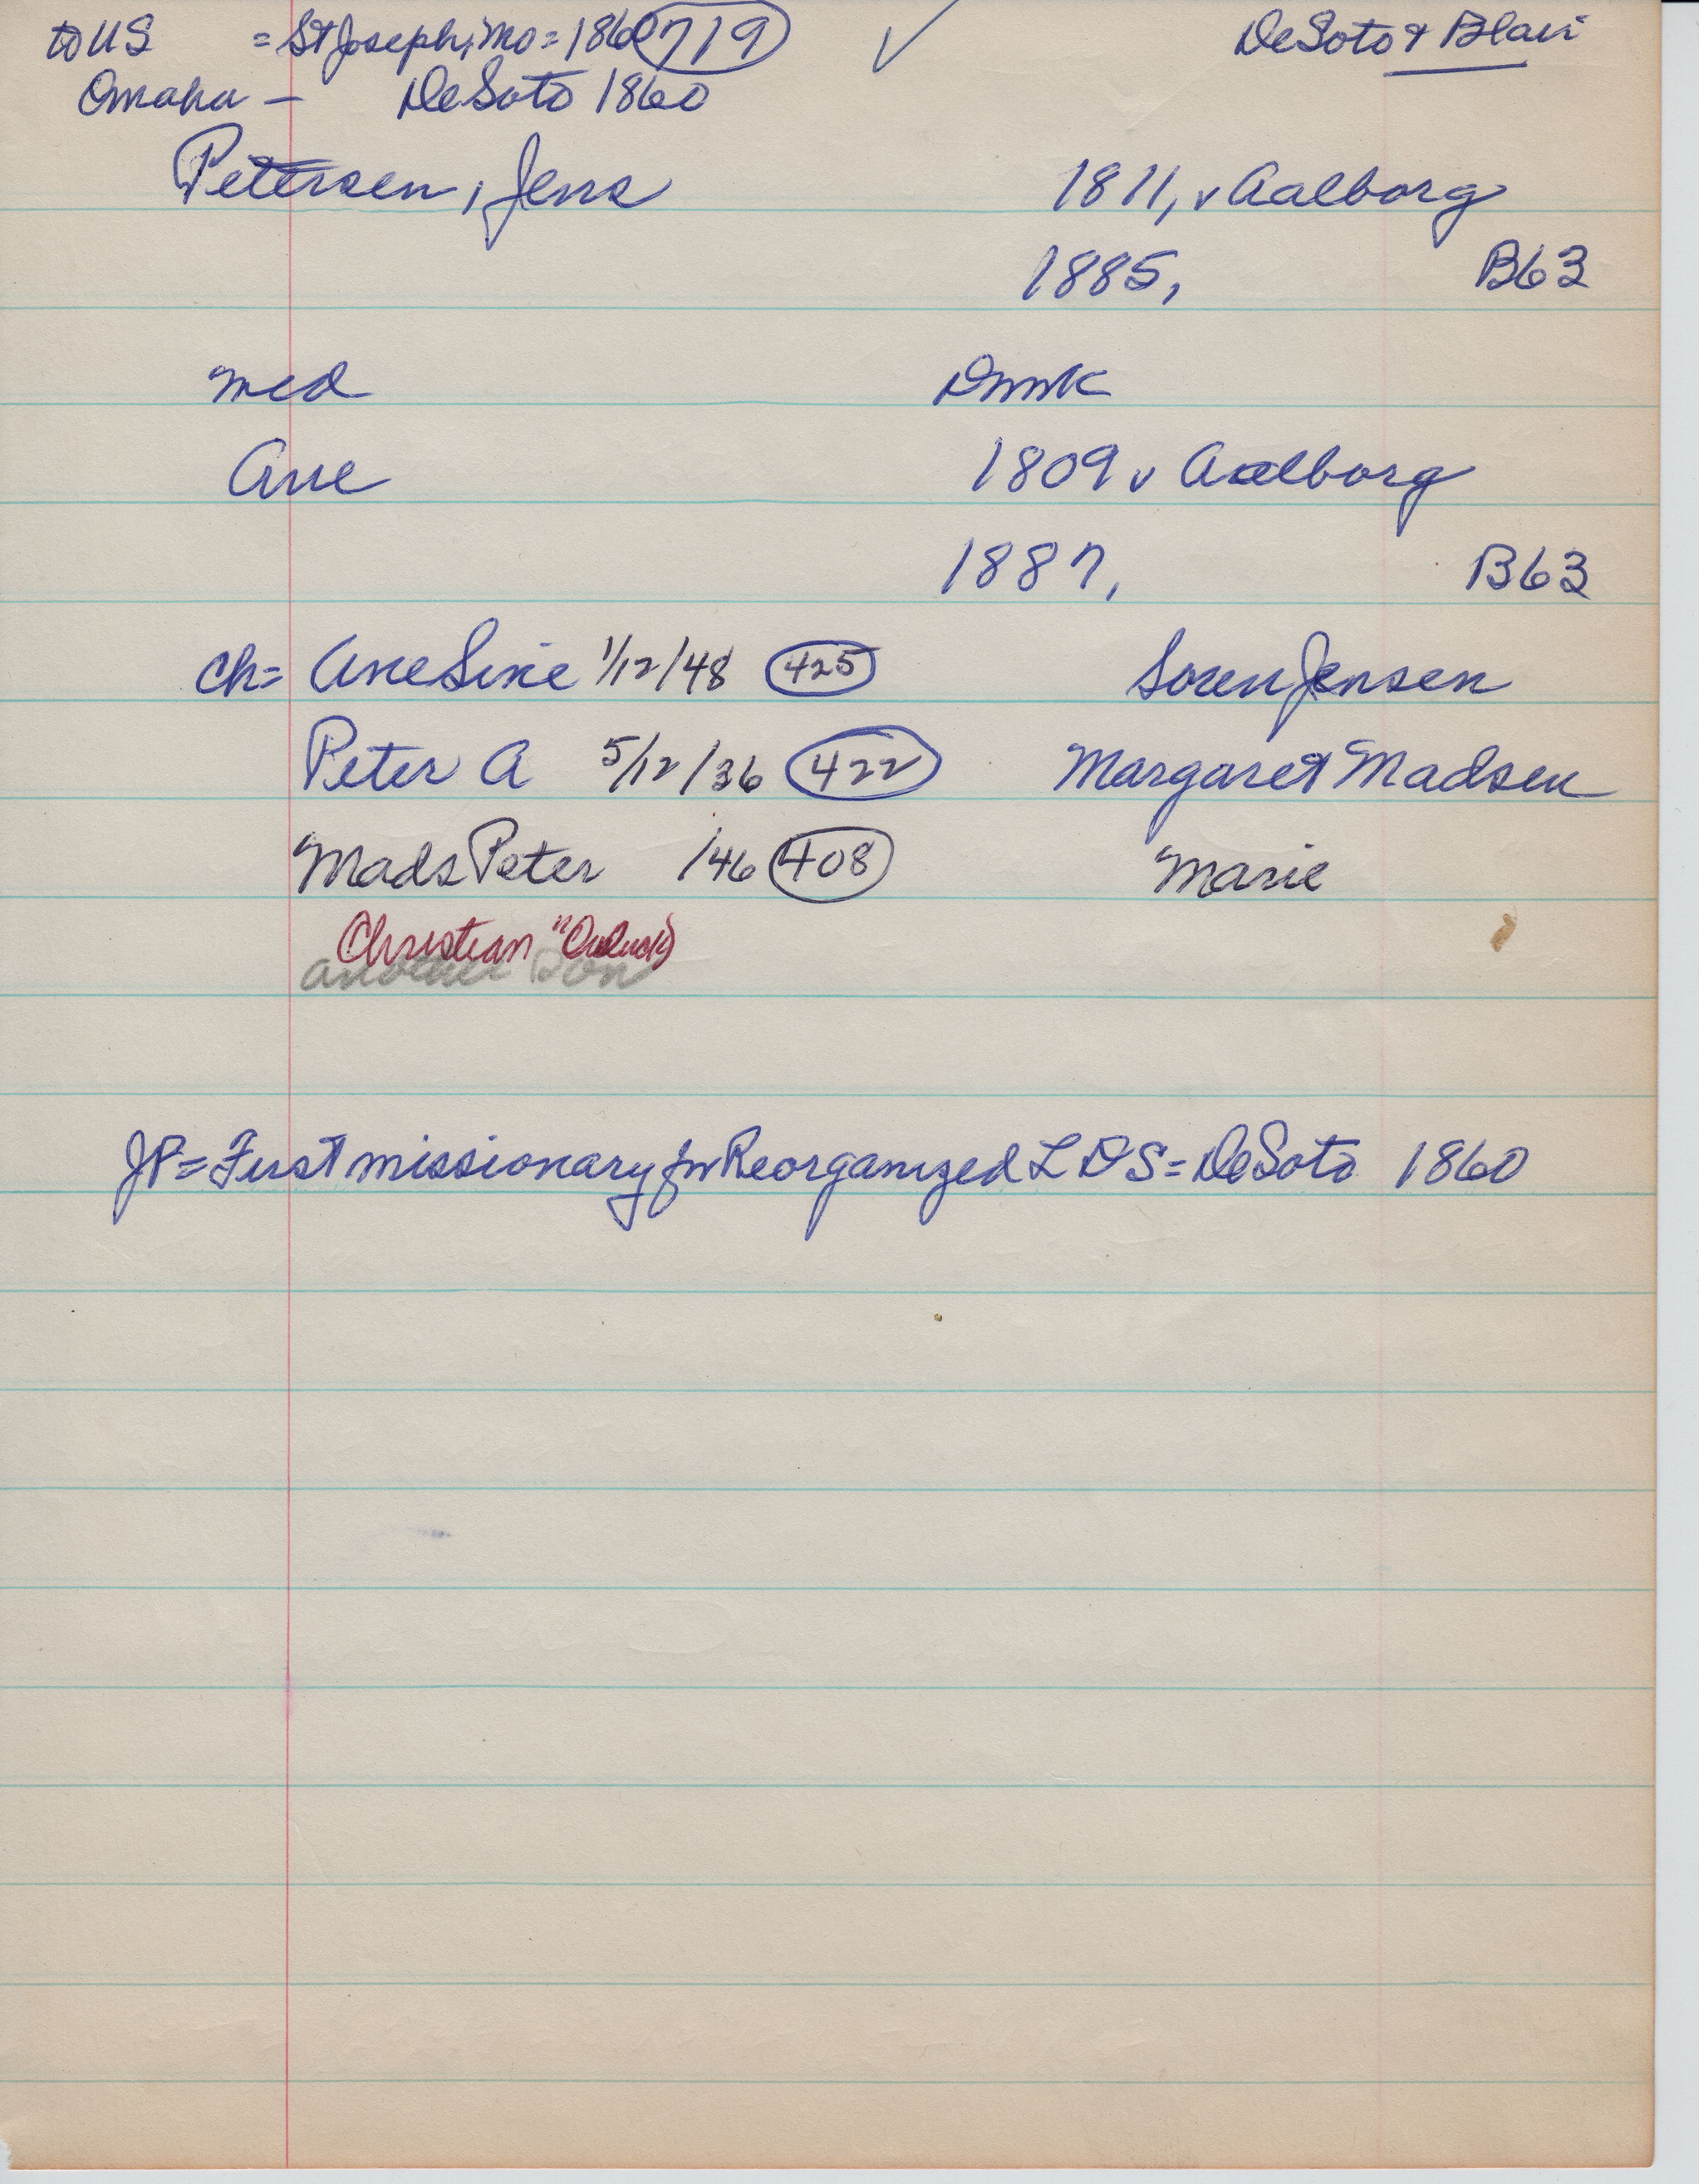 to US = St Joseph, Mo = 1860 719 ✓ DeSoto & Blair
Omaha - DeSoto 1860
Petersen, Jens 1811, v Aalborg
1885, B63
med Dmrk
Ane 1809 v Aalborg
1887, B63
ch= Ane Sine 1/12/48 425 Soren Jensen
Peter A 5/12/36 422 Margaret Madsen
Mads Peter /46 408 Marie
Christian
another son
JP = First missionary for Reorganized LDS = DeSoto 1860